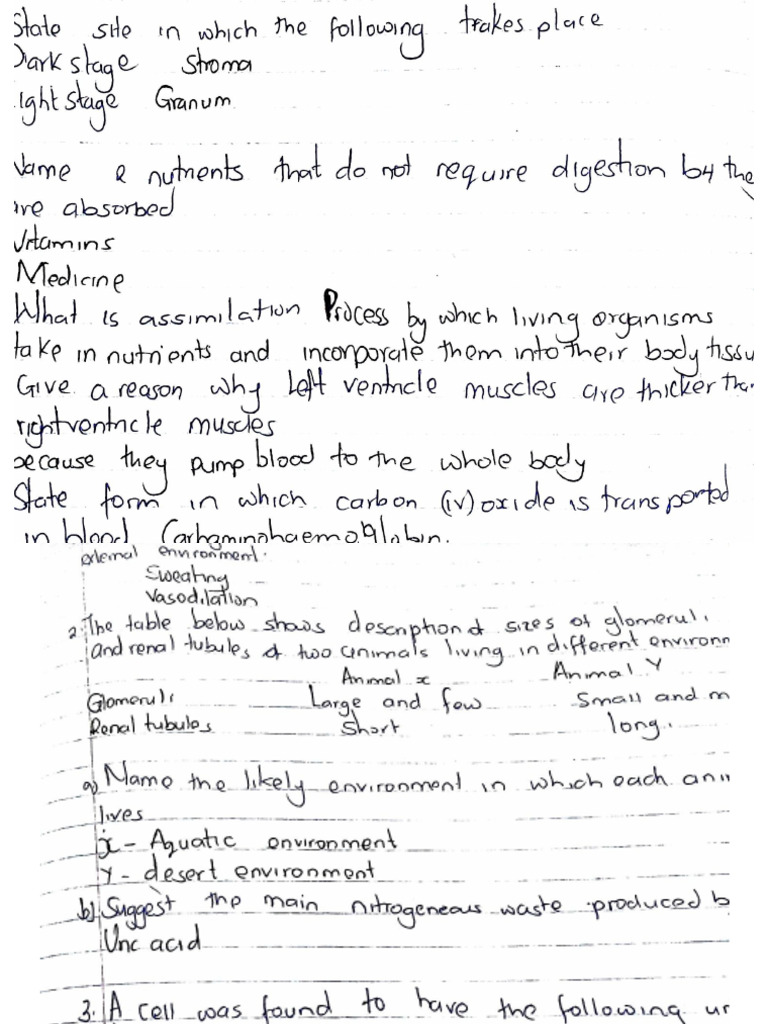 State site in which the following trakes place
Dark stage Stroma
ight stage Granum
Name 2 nutrients that do not require digestion by the
are absorbed
Vitamins
Medicine
What is assimilation Process by which living organisms
take in nutrients and incorporate them into their body tissu
Give a reason why left ventricle muscles are thicker tha
rightventricle muscles
because they pump blood to the whole body
State form in which carbon (iv) oxide is transported
in blood Carbaminohaemoglobin.
external environment.
Sweating
Vasodilation
2. The table below shows description of sizes of glomeruli
and renal tubules of two animals living in different environm
Animal x Animal Y
Glomeruli Large and few Small and m
Renal tubules Short long.
a) Name the likely environment in which each ani
lives
x - Aquatic environment
Y - desert environment
b) Suggest the main nitrogeneous waste produced b
Uric acid
3. A cell was found to have the following ur